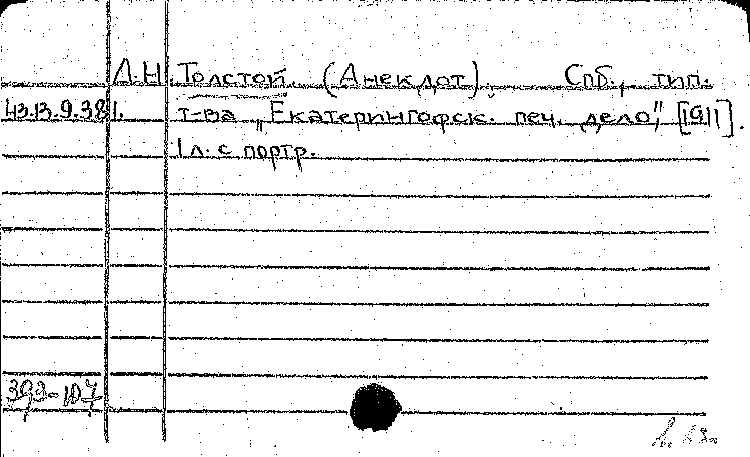 Л.Н. Толстой. (Анекдот). Спб., тип.
43.13.9.381. т-ва „Екатерингофск. печ. дело", [1911].
1 л. с портр.